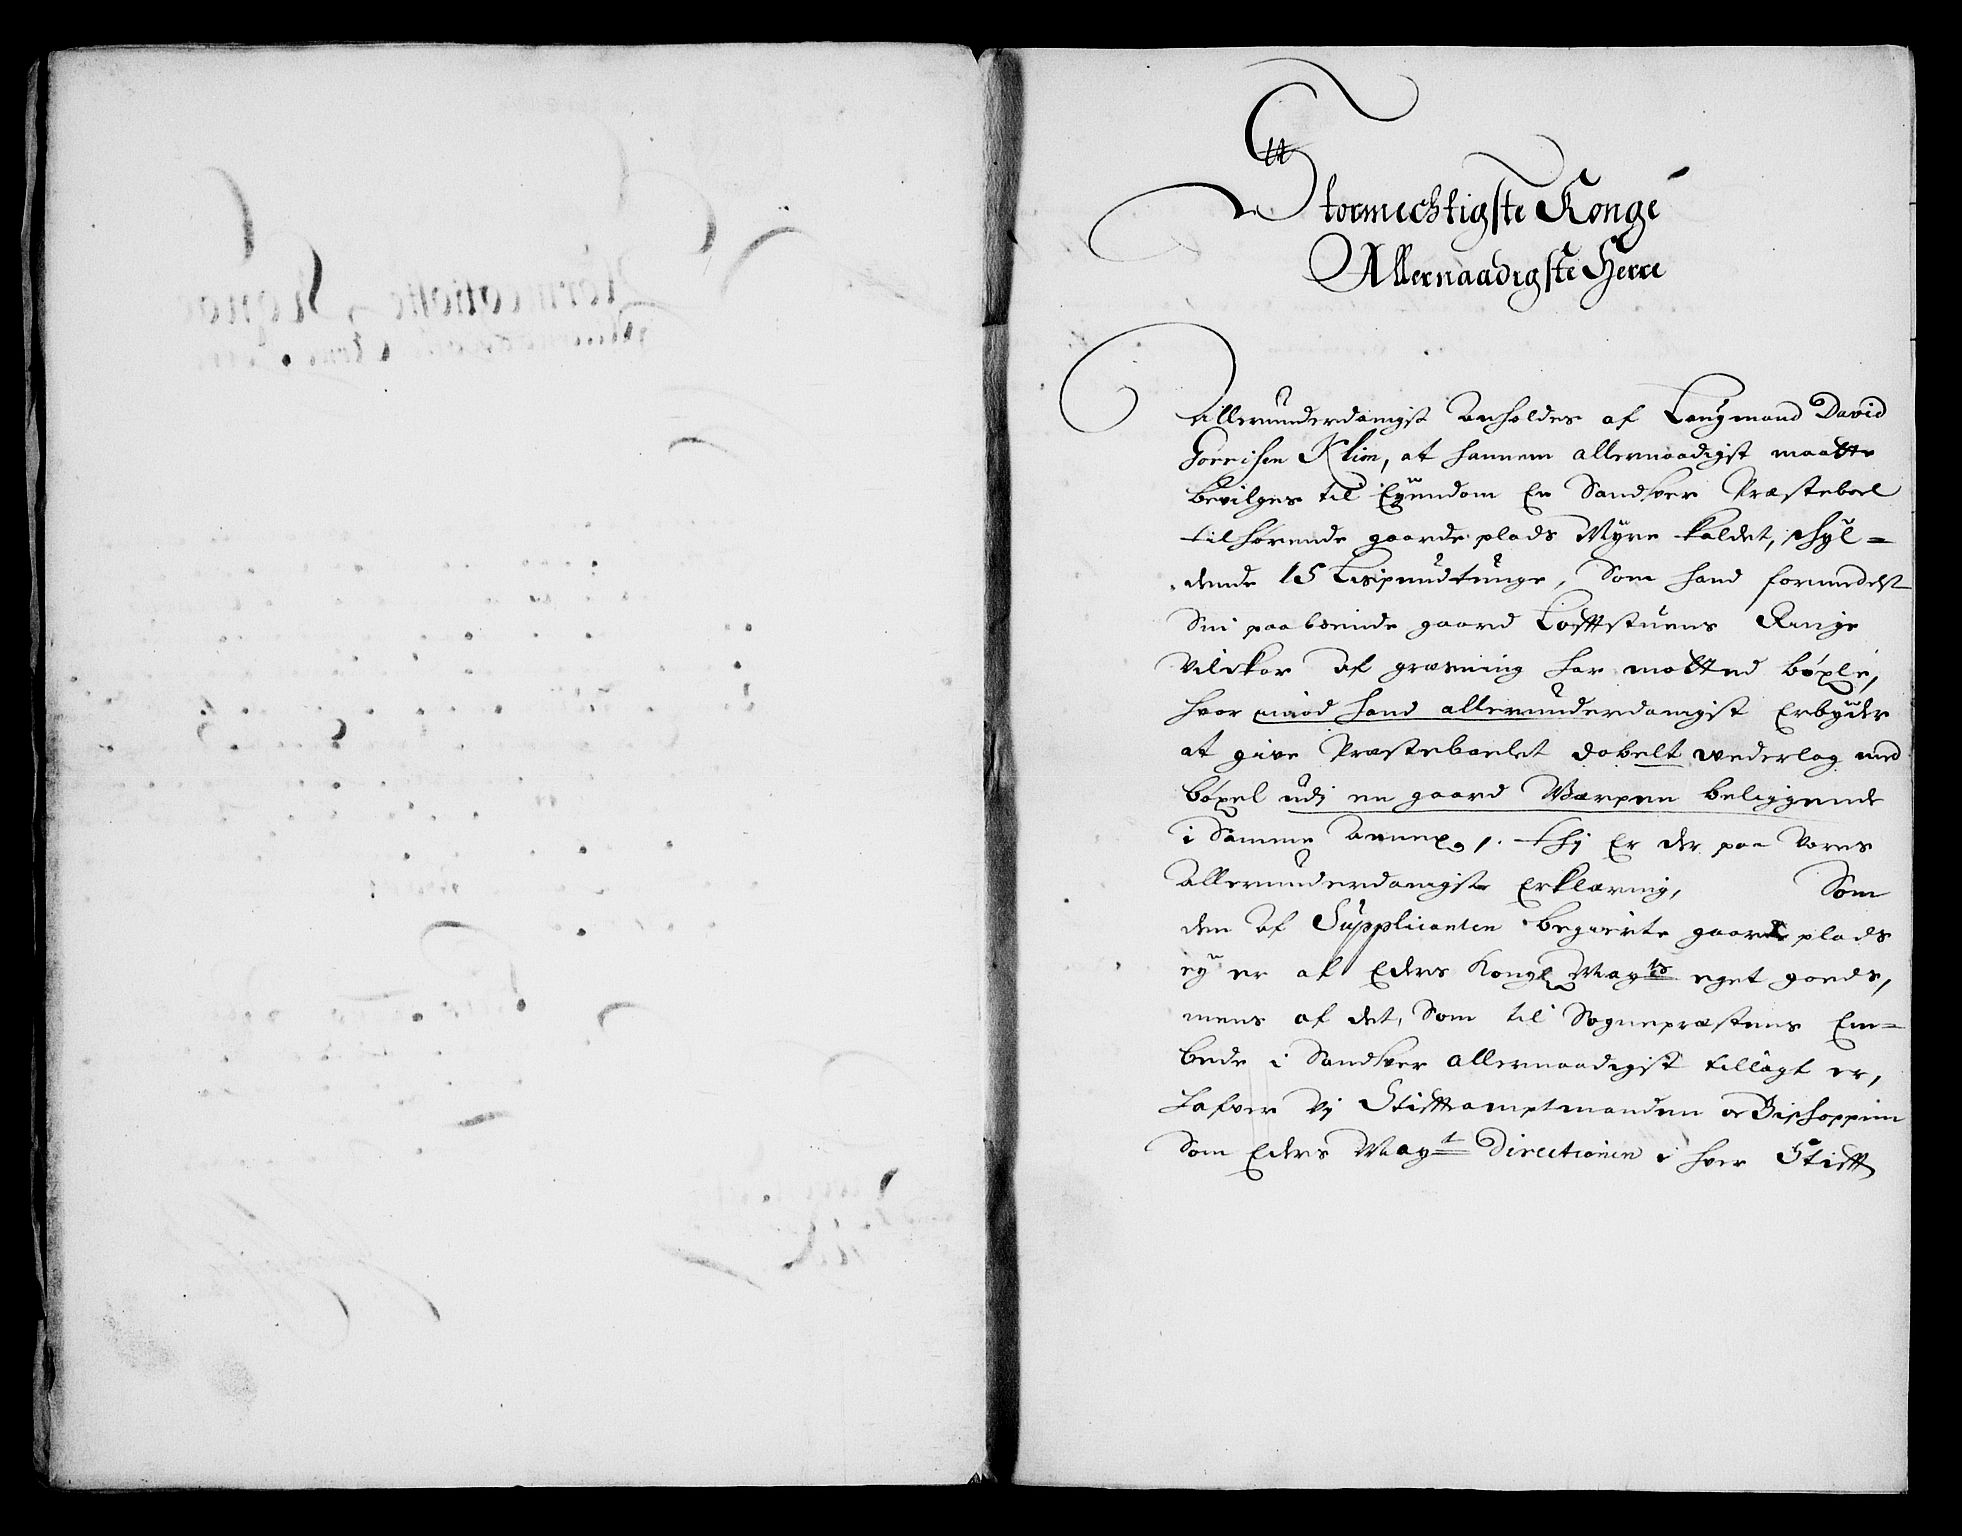 Stormechtigste Konge
Allernaadigste Herre
Allerunderdanigst anholdes af Laugmand David
Gørrisen Klim, at hannem allernaadigst maatte
bevilges til Eÿendom En Sandsver Præsteboel
tilhørende gaarde plads Myre kaldet, schÿl=
dende 15 Lispundtunge, Som hand formedelst
Sin paaboende gaard Løfftstuens Ringe
vilckor af græsning har motted bøxle,
hvor imod hand allerunderdanigst Erbÿder
at give Præsteboelet dobelt wederlag med
bøxel udj en gaard Wærpen beliggende
i Samme Annex. Thj Er der paa Vores
Allerunderdanigste Erklæring, Som
den af Supplicanten begiærte gaards plads
eÿ er af Eders Kongl Mayts eget goeds,
mens af det, Som til Sognepræstens Em=
bede i Sandsver allernaadigst tillagt er,
Lafver Vj Stifftamptmanden oc Bischoppen
Som Eders Mayt Directionen i hver Stifft